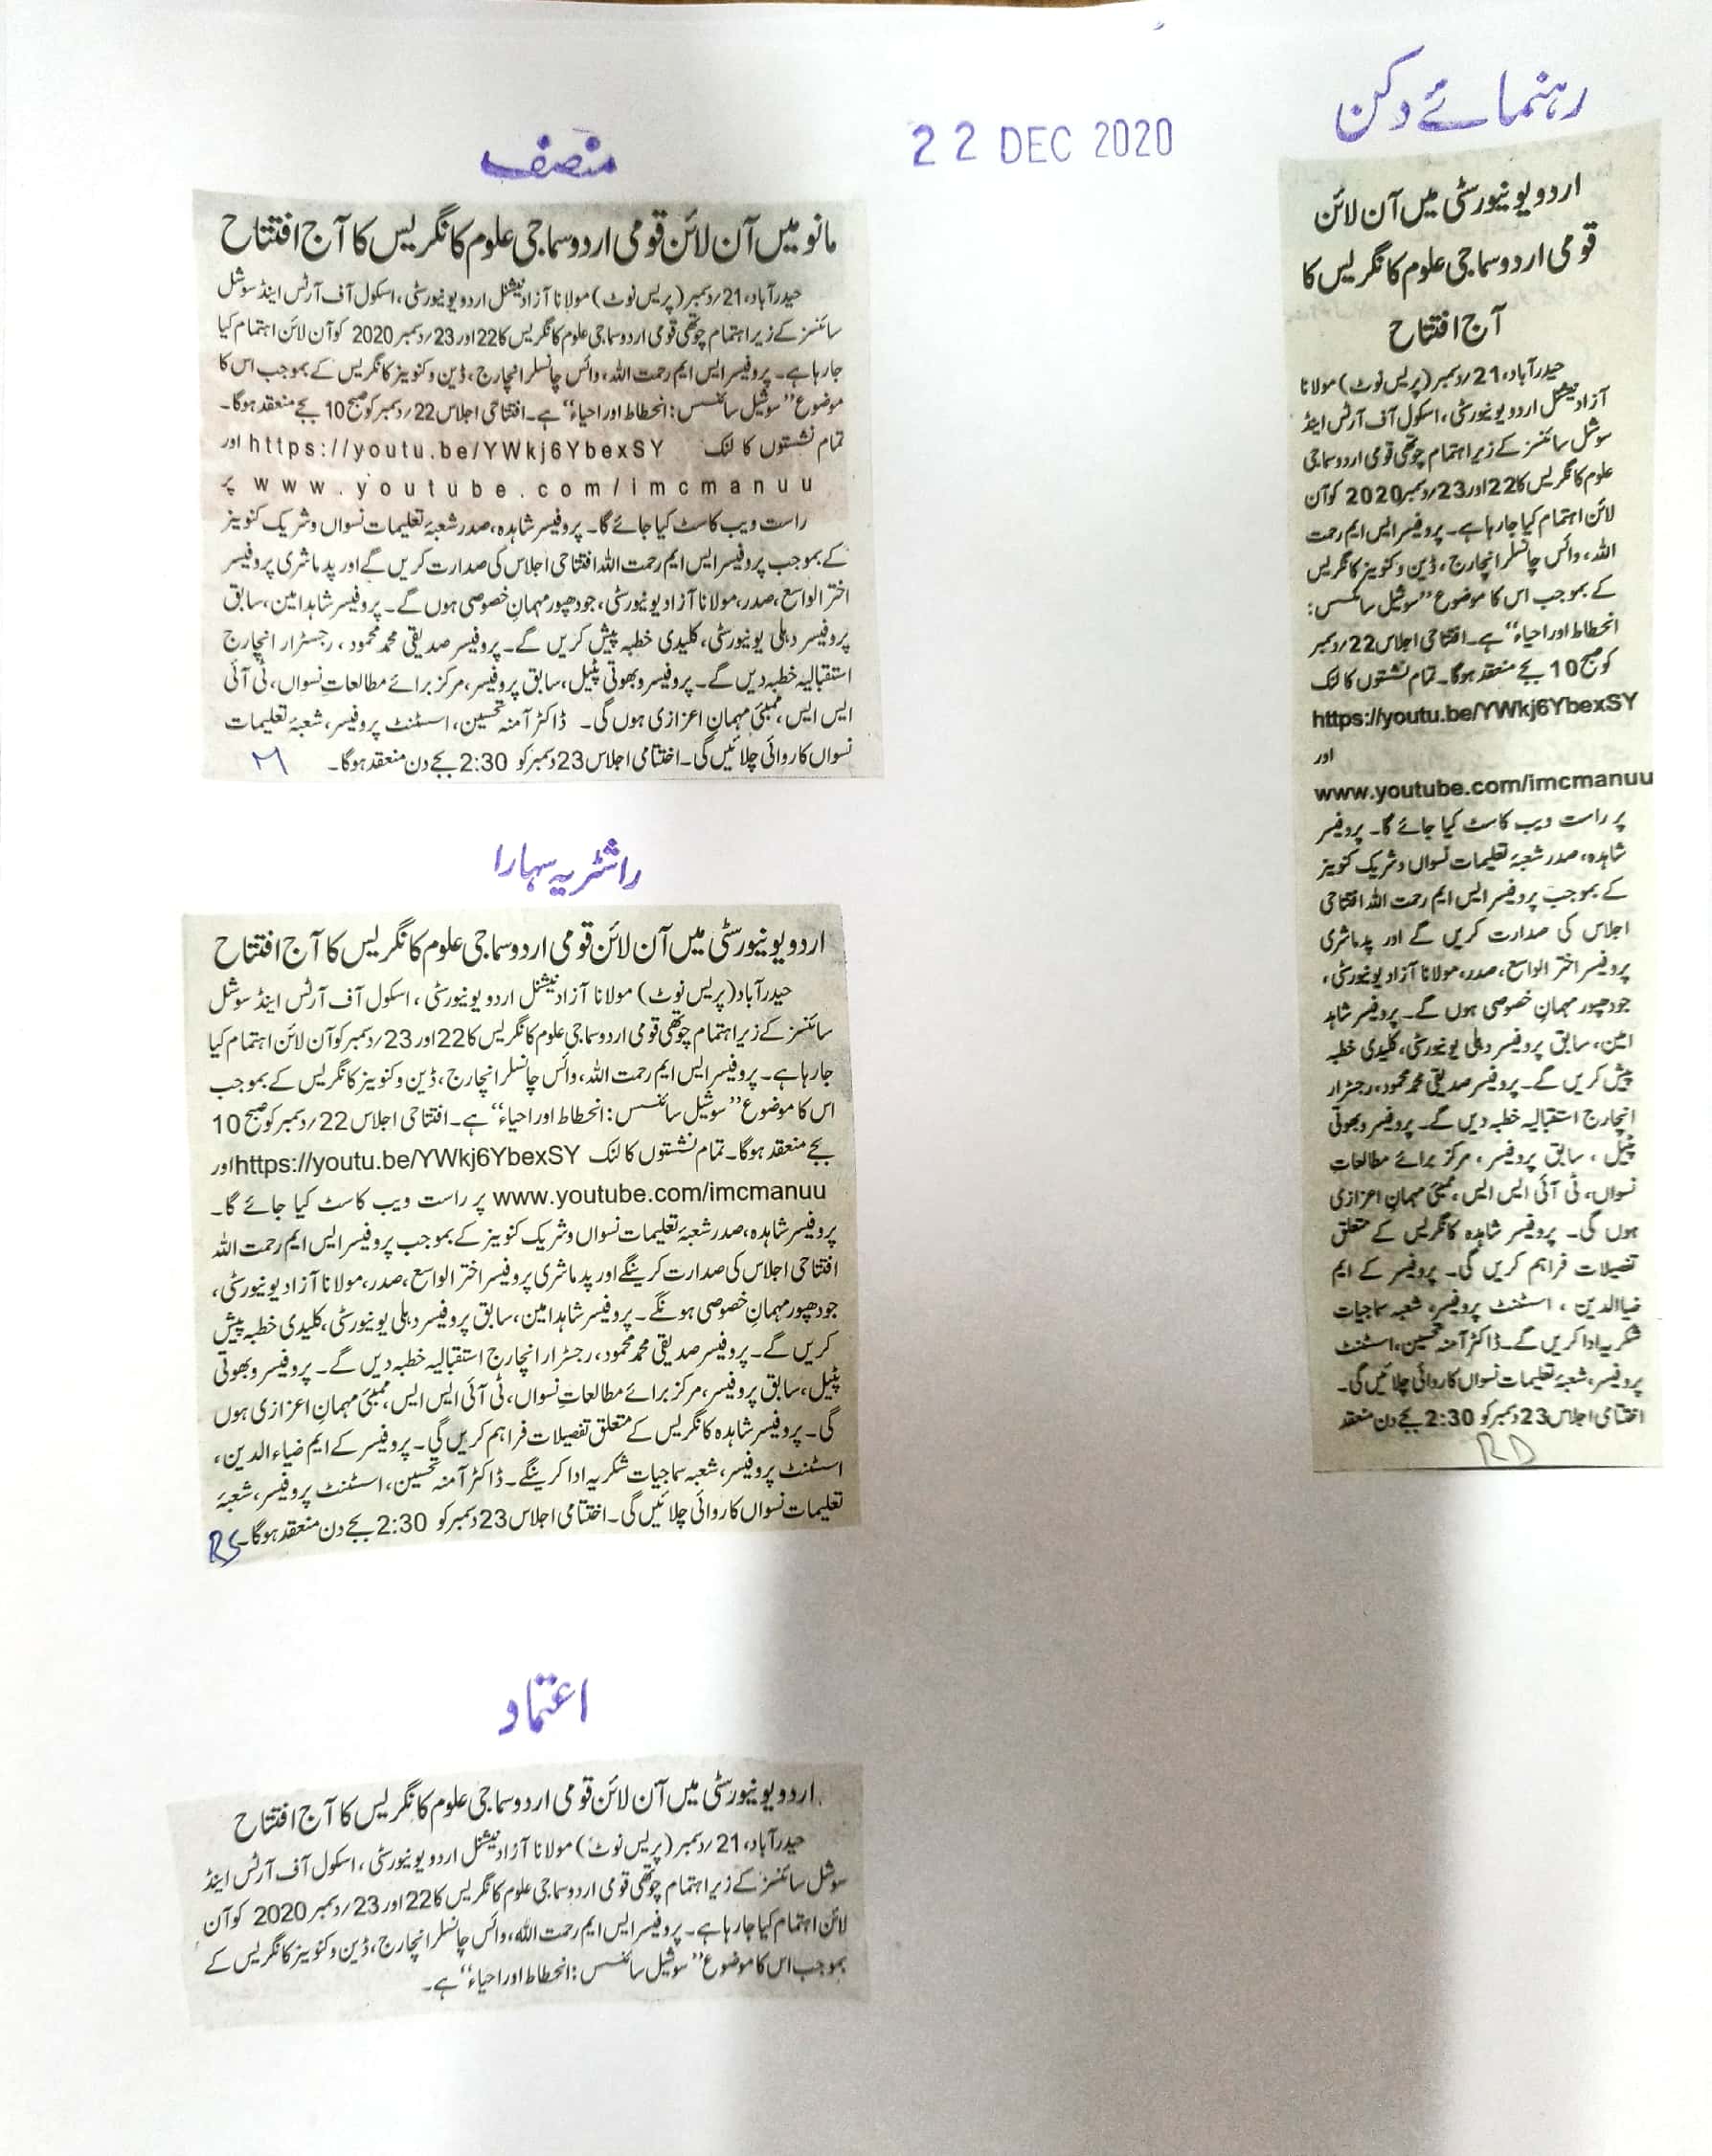 رہنمائے دکن
22 DEC 2020
منصف
مانو میں آن لائن قومی اردو سماجی علوم کانگریس کا آج افتتاح
حیدرآباد، 21/دسمبر (پریس نوٹ) مولانا آزاد نیشنل اردو یونیورسٹی، اسکول آف آرٹس اینڈ سوشل
سائنسز کے زیر اہتمام چوتھی قومی اردو سماجی علوم کانگریس کا 22 اور 23/دسمبر 2020 کو آن لائن اہتمام کیا
جارہا ہے۔ پروفیسر ایس ایم رحمت اللہ، وائس چانسلر انچارج، ڈین و کنوینر کانگریس کے بموجب اس کا
موضوع ”سوشیل سائنسس: انحطاط اور احیاء“ ہے۔ افتتاحی اجلاس 22/دسمبر کو صبح 10 بجے منعقد ہوگا۔
تمام نشستوں کا لنک https://youtu.be/YWkj6YbexSY اور
www.youtube.com/imcmanuu پر
راست ویب کاسٹ کیا جائے گا۔ پروفیسر شاہدہ، صدر شعبۂ تعلیمات نسواں و شریک کنوینر
کے بموجب پروفیسر ایس ایم رحمت اللہ افتتاحی اجلاس کی صدارت کریں گے اور پدما شری پروفیسر
اختر الواسع، صدر، مولانا آزاد یونیورسٹی، جودھپور مہمانِ خصوصی ہوں گے۔ پروفیسر شاہد امین، سابق
پروفیسر دہلی یونیورسٹی، کلیدی خطبہ پیش کریں گے۔ پروفیسر صدیقی محمد محمود، رجسٹرار انچارج
استقبالیہ خطبہ دیں گے۔ پروفیسر وبھوتی پٹیل، سابق پروفیسر، مرکز برائے مطالعات نسواں، ٹی آئی
ایس ایس، ممبئی مہمان اعزازی ہوں گی۔ ڈاکٹر آمنہ تحسین، اسسٹنٹ پروفیسر، شعبۂ تعلیمات
نسواں کاروائی چلائیں گی۔ اختتامی اجلاس 23 دسمبر کو 2:30 بجے دن منعقد ہوگا۔
M
راشٹریہ سہارا
اردو یونیورسٹی میں آن لائن قومی اردو سماجی علوم کانگریس کا آج افتتاح
حیدرآباد (پریس نوٹ) مولانا آزاد نیشنل اردو یونیورسٹی، اسکول آف آرٹس اینڈ سوشل
سائنسز کے زیر اہتمام چوتھی قومی اردو سماجی علوم کانگریس کا 22 اور 23/دسمبر کو آن لائن اہتمام کیا
جارہا ہے۔ پروفیسر ایس ایم رحمت اللہ، وائس چانسلر انچارج، ڈین و کنوینر کانگریس کے بموجب
اس کا موضوع ”سوشیل سائنسس: انحطاط اور احیاء“ ہے۔ افتتاحی اجلاس 22/دسمبر کو صبح 10
بجے منعقد ہوگا۔ تمام نشستوں کا لنک https://youtu.be/YWkj6YbexSY اور
www.youtube.com/imcmanuu پر راست ویب کاسٹ کیا جائے گا۔
پروفیسر شاہدہ، صدر شعبۂ تعلیمات نسواں و شریک کنوینر کے بموجب پروفیسر ایس ایم رحمت اللہ
افتتاحی اجلاس کی صدارت کرینگے اور پدما شری پروفیسر اختر الواسع، صدر، مولانا آزاد یونیورسٹی،
جودھپور مہمانِ خصوصی ہونگے۔ پروفیسر شاہد امین، سابق پروفیسر دہلی یونیورسٹی، کلیدی خطبہ پیش
کریں گے۔ پروفیسر صدیقی محمد محمود، رجسٹرار انچارج استقبالیہ خطبہ دیں گے۔ پروفیسر وبھوتی
پٹیل، سابق پروفیسر، مرکز برائے مطالعاتِ نسواں، ٹی آئی ایس ایس، ممبئی مہمانِ اعزازی ہوں
گی۔ پروفیسر شاہدہ کانگریس کے متعلق تفصیلات فراہم کریں گی۔ پروفیسر کے ایم ضیاء الدین،
اسسٹنٹ پروفیسر، شعبہ سماجیات شکریہ ادا کرینگے۔ ڈاکٹر آمنہ تحسین، اسسٹنٹ پروفیسر، شعبۂ
تعلیمات نسواں کاروائی چلائیں گی۔ اختتامی اجلاس 23 دسمبر کو 2:30 بجے دن منعقد ہوگا۔
RS
اعتماد
اردو یونیورسٹی میں آن لائن قومی اردو سماجی علوم کانگریس کا آج افتتاح
حیدرآباد، 21/دسمبر (پریس نوٹ) مولانا آزاد نیشنل اردو یونیورسٹی، اسکول آف آرٹس اینڈ
سوشل سائنسز کے زیر اہتمام چوتھی قومی اردو سماجی علوم کانگریس کا 22 اور 23/دسمبر 2020 کو آن
لائن اہتمام کیا جارہا ہے۔ پروفیسر ایس ایم رحمت اللہ، وائس چانسلر انچارج، ڈین و کنوینر کانگریس کے
بموجب اس کا موضوع ”سوشیل سائنسس: انحطاط اور احیاء“ ہے۔
اردو یونیورسٹی میں آن لائن
قومی اردو سماجی علوم کانگریس کا
آج افتتاح
حیدرآباد، 21/دسمبر (پریس نوٹ) مولانا
آزاد نیشنل اردو یونیورسٹی، اسکول آف آرٹس اینڈ
سوشل سائنسز کے زیر اہتمام چوتھی قومی اردو سماجی
علوم کانگریس کا 22 اور 23/دسمبر 2020 کو آن
لائن اہتمام کیا جارہا ہے۔ پروفیسر ایس ایم رحمت
اللہ، وائس چانسلر انچارج، ڈین و کنوینر کانگریس
کے بموجب اس کا موضوع ”سوشیل سائنسس:
انحطاط اور احیاء“ ہے۔ افتتاحی اجلاس 22/دسمبر
کو صبح 10 بجے منعقد ہوگا۔ تمام نشستوں کا لنک
https://youtu.be/YWkj6YbexSY
اور
www.youtube.com/imcmanuu
پر راست ویب کاسٹ کیا جائے گا۔ پروفیسر
شاہدہ، صدر شعبۂ تعلیمات نسواں و شریک کنوینر
کے بموجب پروفیسر ایس ایم رحمت اللہ افتتاحی
اجلاس کی صدارت کریں گے اور پدما شری
پروفیسر اختر الواسع، صدر، مولانا آزاد یونیورسٹی،
جودھپور مہمانِ خصوصی ہوں گے۔ پروفیسر شاہد
امین، سابق پروفیسر دہلی یونیورسٹی، کلیدی خطبہ
پیش کریں گے۔ پروفیسر صدیقی محمد محمود، رجسٹرار
انچارج استقبالیہ خطبہ دیں گے۔ پروفیسر وبھوتی
پٹیل، سابق پروفیسر، مرکز برائے مطالعاتِ
نسواں، ٹی آئی ایس ایس، ممبئی مہمانِ اعزازی
ہوں گی۔ پروفیسر شاہدہ کانگریس کے متعلق
تفصیلات فراہم کریں گی۔ پروفیسر کے ایم
ضیاالدین، اسسٹنٹ پروفیسر، شعبہ سماجیات
شکریہ ادا کریں گے۔ ڈاکٹر آمنہ تحسین، اسسٹنٹ
پروفیسر، شعبۂ تعلیمات نسواں کاروائی چلائیں گی۔
اختتامی اجلاس 23 دسمبر کو 2:30 بجے دن منعقد
RD